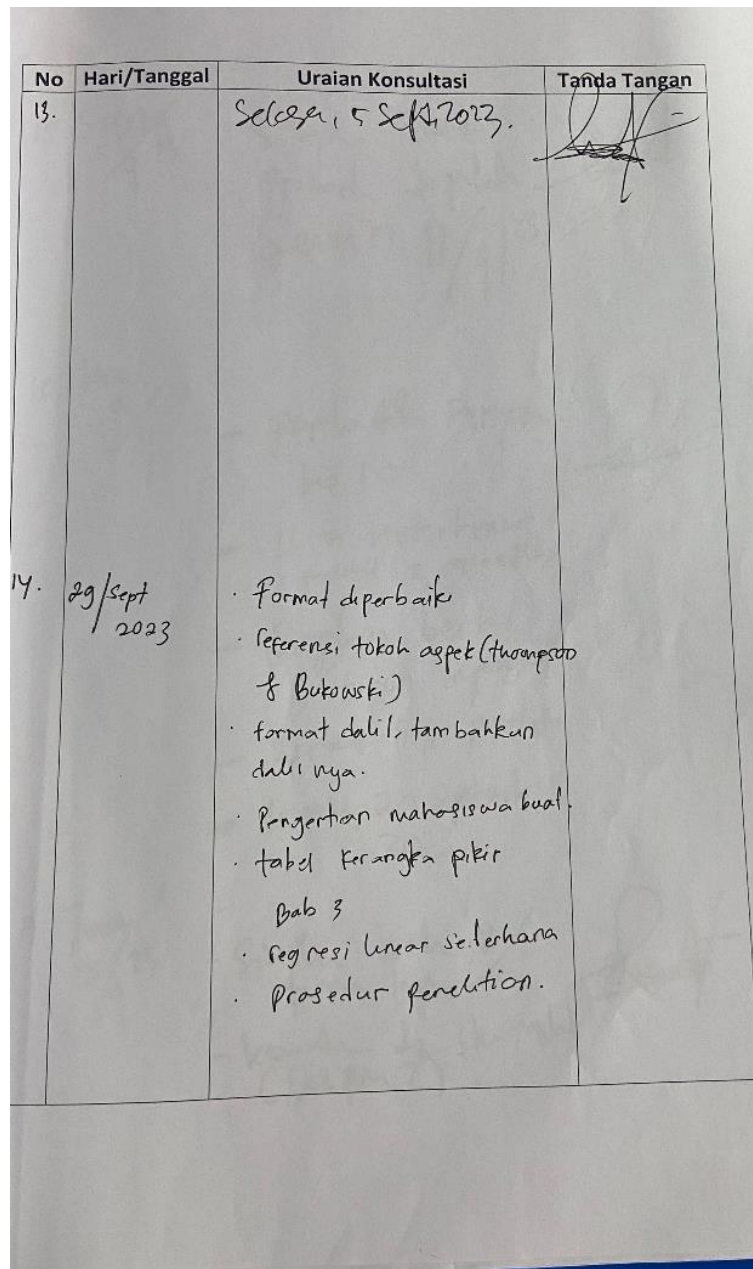 No Hari/Tanggal Uraian Konsultasi Tanda Tangan
13. Selasa, 5 Sept, 2023.
14. 29/Sept 2023
· Format diperbaik
· referensi tokoh aspek (thoompson
& Bukowski)
· format dalil, tambahkan
dalilnya.
· Pengertian mahasiswa buat.
· tabel kerangka pikir
Bab 3
· regresi linear sederhana
· Prosedur penelitian.